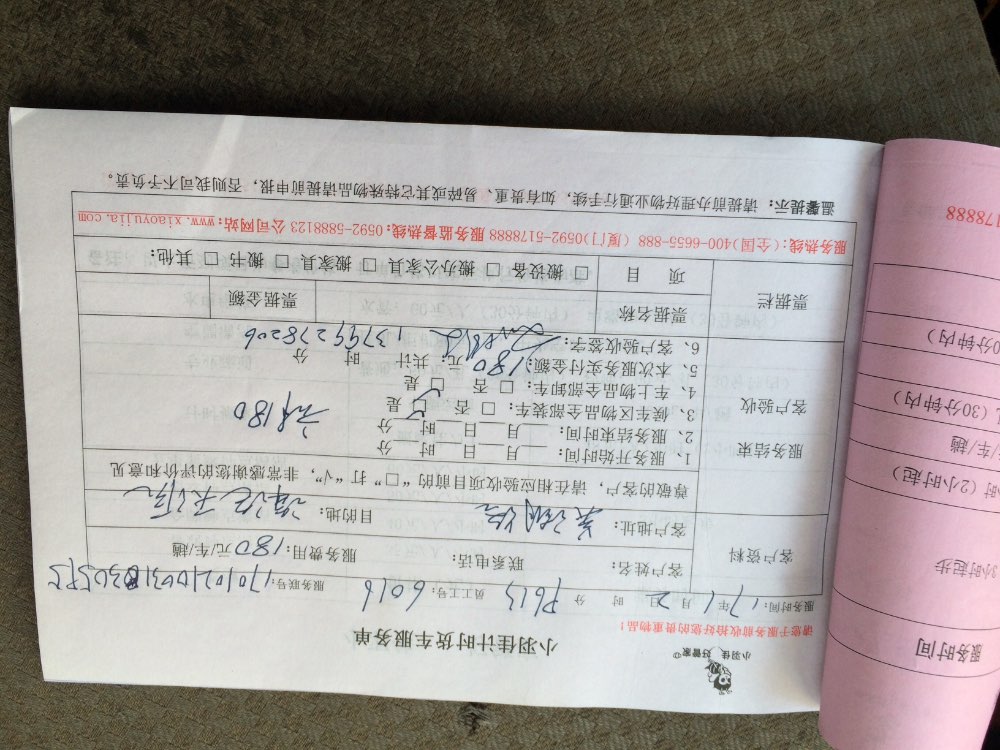 小羽佳 好管家
小羽佳计时货车服务单
请您于服务前收拾好您的贵重物品！
服务时间：17年1月2日 时 分 P613 员工工号：6016 服务联号：
客户资料
客户姓名： 联系电话： 服务费用：180元/车/趟
客户地址： 目的地：
尊敬的客户，请在相应验收项目前的“□”打“√”，非常感谢您的评价和意见
服务结束
客户验收
1、服务开始时间：___月___日___时 分
2、服务结束时间：___月___日___时 分
3、候车区物品全部装车：□ 否 □ 是
4、车上物品全部卸车：□ 否 □ 是
5、本次服务实付金额：180元；共计 时 分
6、客户验收签字： 13799278206
180
票据栏
票据名称 票据金额
项 目 □ 搬设备 □ 搬办公家具 □ 搬家具 □ 搬书 □ 其他：
服务热线：(全国)400-6655-888 (厦门)0592-5178888 服务监督热线：0592-5888123 公司网站：www.xiaoyujia.com
温馨提示：请提前办理好物业通行手续，如有贵重、易碎或其它特殊物品请提前申报，否则我司不予负责。
服务时间
3小时起步
时(2小时起)
/车/趟
(30分钟内)
0分钟内)
178888